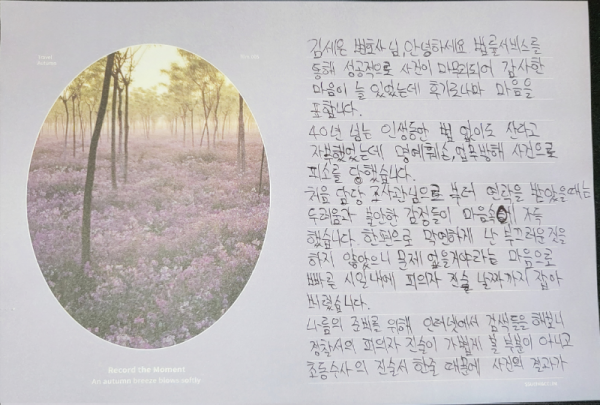 Record the Moment
An autumn breeze blows softly
김세은 변호사님, 안녕하세요 법률서비스를
통해 성공적으로 사건이 마무리되어 감사한
마음이 늘 있었는데 후기로나마 마음을
표합니다.
40년 넘는 인생동안 법 없이도 산다고
자부했었는데 명예훼손, 업무방해 사건으로
피소를 당했습니다.
처음 담당 조사관님으로 부터 연락을 받았을때는
두려움과 불안한 감정들이 마음속에 가득
했습니다. 한편으로 막연하게 난 부끄러운것을
하지 않았으니 문제 없을거야라는 마음으로
빠른 시일내에 피의자 진술 날짜까지 잡아
버렸습니다.
나름의 준비를 위해 인터넷에서 검색들을 해보니
경찰서의 피의자 진술이 가볍게 볼 부분이 아니고
초동수사의 진술서 한줄 때문에 사건의 결과가